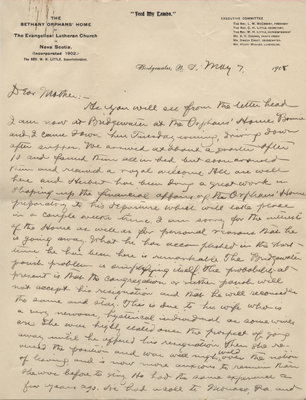 "Feed My Lambs."
THE
BETHANY ORPHANS' HOME
OF
The Evangelical Lutheran Church
IN
Nova Scotia.
(Incorporated 1902.)
The REV. W. H. LITTLE, Superintendent.
EXECUTIVE COMMITTEE
Bridgewater, N. S., May 7, 190
Dear Mother:-
As you will see from the letter head
I am now at Bridgewater at the Orphans' Home. Bonnie
and I came down here Tuesday evening, driving down
after supper. We arrived at about a quarter after
10 and found them all in bed but soon aroused
them and received a royal welcome. All are well
here and Herbert has been doing a great work in
shaping up the financial affairs of the Orphans' Home
preparatory to his departure which will take place
in a couple weeks time. I am sorry for the interests
of the Home as well as for personal reasons that he
is going away. What he has accomplished in the short
time he has been here is remarkable. The Bridgewater
parish problem is simplifying itself. The probabilities at
present is that the congregation or rather parish will
not accept his resignation and that he will reconsider
the same and stay. This is due to his wife who is
a very nervous, hysterical individual in some ways
are. She was highly elated over the prospect of going
away until he offered his resignation. Then she re-
versed the position and was well nigh wild over the notion
of leaving and is now more anxious to remain than
she was before to stay. He had the same experience a
few years ago. He had a call to Monaca, Pa. and